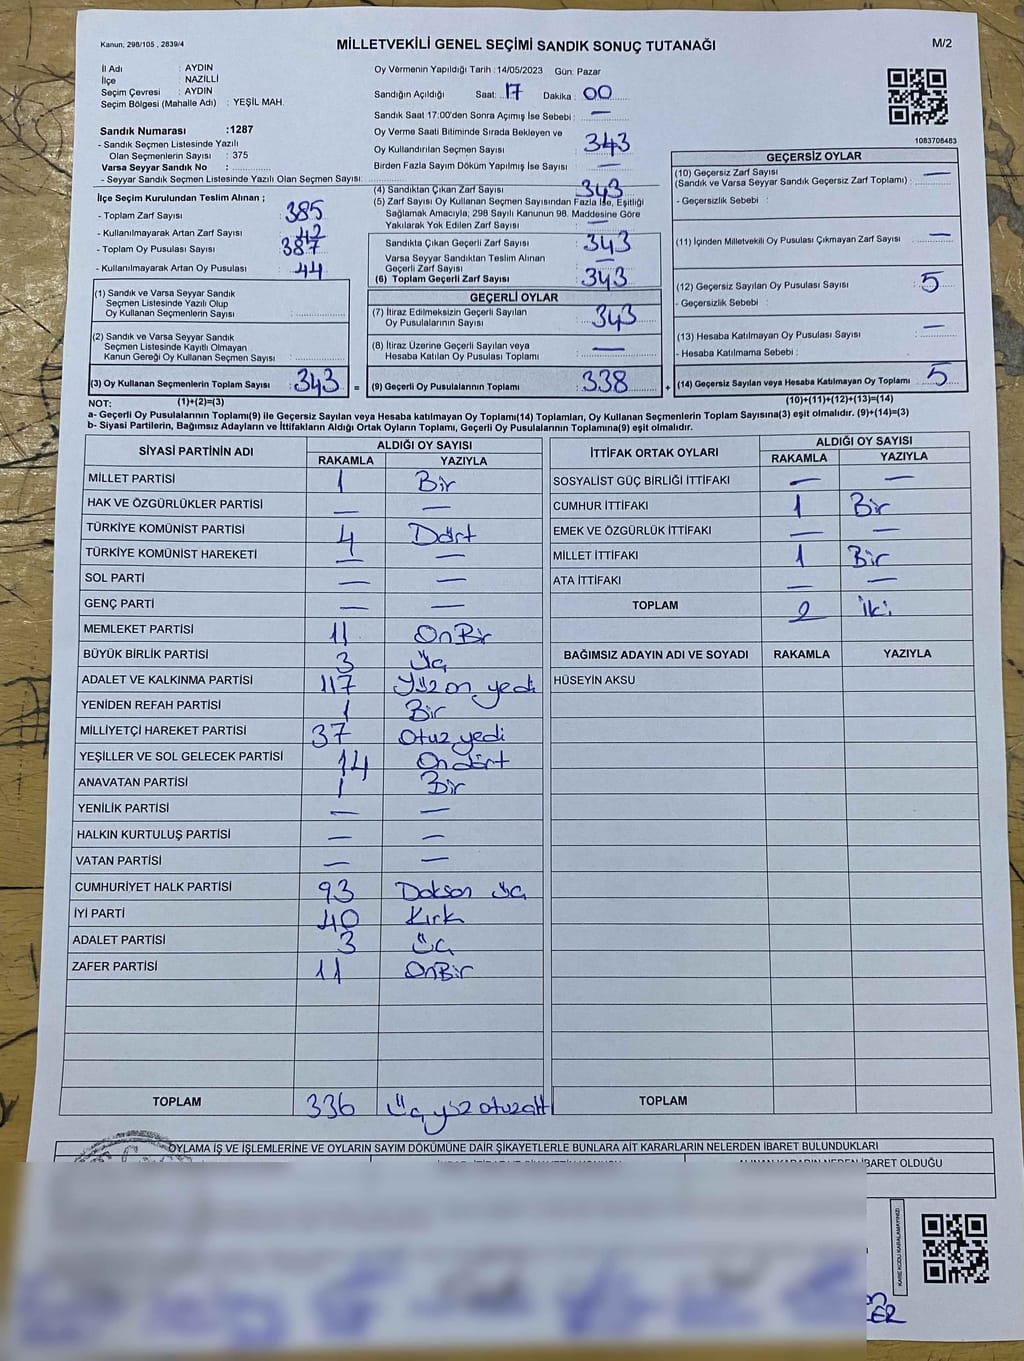 Kanun, 298/105 , 2839/4
MİLLETVEKİLİ GENEL SEÇİMİ SANDIK SONUÇ TUTANAĞI
M/2
İl Adı : AYDIN
İlçe : NAZİLLİ
Seçim Çevresi : AYDIN
Seçim Bölgesi (Mahalle Adı) : YEŞİL MAH.
Sandık Numarası :1287
- Sandık Seçmen Listesinde Yazılı
Olan Seçmenlerin Sayısı : 375
Varsa Seyyar Sandık No :
- Seyyar Sandık Seçmen Listesinde Yazılı Olan Seçmen Sayısı:
İlçe Seçim Kurulundan Teslim Alınan ;
- Toplam Zarf Sayısı : 385
- Kullanılmayarak Artan Zarf Sayısı : 42
- Toplam Oy Pusulası Sayısı : 387
- Kullanılmayarak Artan Oy Pusulası : 44
(1) Sandık ve Varsa Seyyar Sandık
Seçmen Listesinde Yazılı Olup
Oy Kullanan Seçmenlerin Sayısı :
(2) Sandık ve Varsa Seyyar Sandık
Seçmen Listesinde Kayıtlı Olmayan
Kanun Gereği Oy Kullanan Seçmen Sayısı :
(3) Oy Kullanan Seçmenlerin Toplam Sayısı : 343 =
(1)+(2)=(3)
Oy Vermenin Yapıldığı Tarih :14/05/2023 Gün: Pazar
Sandığın Açıldığı Saat: 17 Dakika : 00
Sandık Saat 17:00'den Sonra Açımış İse Sebebi : —
Oy Verme Saati Bitiminde Sırada Bekleyen ve
Oy Kullandırılan Seçmen Sayısı : 343
Birden Fazla Sayım Döküm Yapılmış İse Sayısı : —
(4) Sandıktan Çıkan Zarf Sayısı : 343
(5) Zarf Sayısı Oy Kullanan Seçmen Sayısından Fazla İse, Eşitliği
Sağlamak Amacıyla; 298 Sayılı Kanunun 98. Maddesine Göre
Yakılarak Yok Edilen Zarf Sayısı : —
Sandıkta Çıkan Geçerli Zarf Sayısı : 343
Varsa Seyyar Sandıktan Teslim Alınan
Geçerli Zarf Sayısı : —
(6) Toplam Geçerli Zarf Sayısı : 343
GEÇERLİ OYLAR
(7) İtiraz Edilmeksizin Geçerli Sayılan
Oy Pusulalarının Sayısı : 343
(8) İtiraz Üzerine Geçerli Sayılan veya
Hesaba Katılan Oy Pusulası Toplamı : —
(9) Geçerli Oy Pusulalarının Toplamı : 338 +
1083708483
GEÇERSİZ OYLAR
(10) Geçersiz Zarf Sayısı
(Sandık ve Varsa Seyyar Sandık Geçersiz Zarf Toplamı) : —
- Geçersizlik Sebebi :
(11) İçinden Milletvekili Oy Pusulası Çıkmayan Zarf Sayısı : —
(12) Geçersiz Sayılan Oy Pusulası Sayısı : 5
- Geçersizlik Sebebi :
(13) Hesaba Katılmayan Oy Pusulası Sayısı : —
- Hesaba Katılmama Sebebi :
(14) Geçersiz Sayılan veya Hesaba Katılmayan Oy Toplamı : 5
(10)+(11)+(12)+(13)=(14)
NOT:
a- Geçerli Oy Pusulalarının Toplamı(9) ile Geçersiz Sayılan veya Hesaba katılmayan Oy Toplamı(14) Toplamları, Oy Kullanan Seçmenlerin Toplam Sayısına(3) eşit olmalıdır. (9)+(14)=(3)
b- Siyasi Partilerin, Bağımsız Adayların ve İttifakların Aldığı Oyların Toplamı, Geçerli Oy Pusulalarının Toplamına(9) eşit olmalıdır.
SİYASİ PARTİNİN ADI ALDIĞI OY SAYISI
RAKAMLA YAZIYLA
MİLLET PARTİSİ 1 Bir
HAK VE ÖZGÜRLÜKLER PARTİSİ — —
TÜRKİYE KOMÜNİST PARTİSİ 4 Dört
TÜRKİYE KOMÜNİST HAREKETİ — —
SOL PARTİ — —
GENÇ PARTİ — —
MEMLEKET PARTİSİ 11 OnBir
BÜYÜK BİRLİK PARTİSİ 3 Üç
ADALET VE KALKINMA PARTİSİ 117 Yüz on yedi
YENİDEN REFAH PARTİSİ 1 Bir
MİLLİYETÇİ HAREKET PARTİSİ 37 Otuz yedi
YEŞİLLER VE SOL GELECEK PARTİSİ 14 On dört
ANAVATAN PARTİSİ 1 Bir
YENİLİK PARTİSİ — —
HALKIN KURTULUŞ PARTİSİ — —
VATAN PARTİSİ — —
CUMHURİYET HALK PARTİSİ 93 Doksan üç
İYİ PARTİ 40 Kırk
ADALET PARTİSİ 3 Üç
ZAFER PARTİSİ 11 OnBir
TOPLAM 336 Üç yüz otuz altı
İTTİFAK ORTAK OYLARI ALDIĞI OY SAYISI
RAKAMLA YAZIYLA
SOSYALİST GÜÇ BİRLİĞİ İTTİFAKI — —
CUMHUR İTTİFAKI 1 Bir
EMEK VE ÖZGÜRLÜK İTTİFAKI — —
MİLLET İTTİFAKI 1 Bir
ATA İTTİFAKI — —
TOPLAM 2 İki
BAĞIMSIZ ADAYIN ADI VE SOYADI RAKAMLA YAZIYLA
HÜSEYİN AKSU
TOPLAM
OYLAMA İŞ VE İŞLEMLERİNE VE OYLARIN SAYIM DÖKÜMÜNE DAİR ŞİKAYETLERLE BUNLARA AİT KARARLARIN NELERDEN İBARET BULUNDUKLARI
ALINAN KARARIN NEDEN İBARET OLDUĞU
KARE KODU KARALAMAYINIZ!